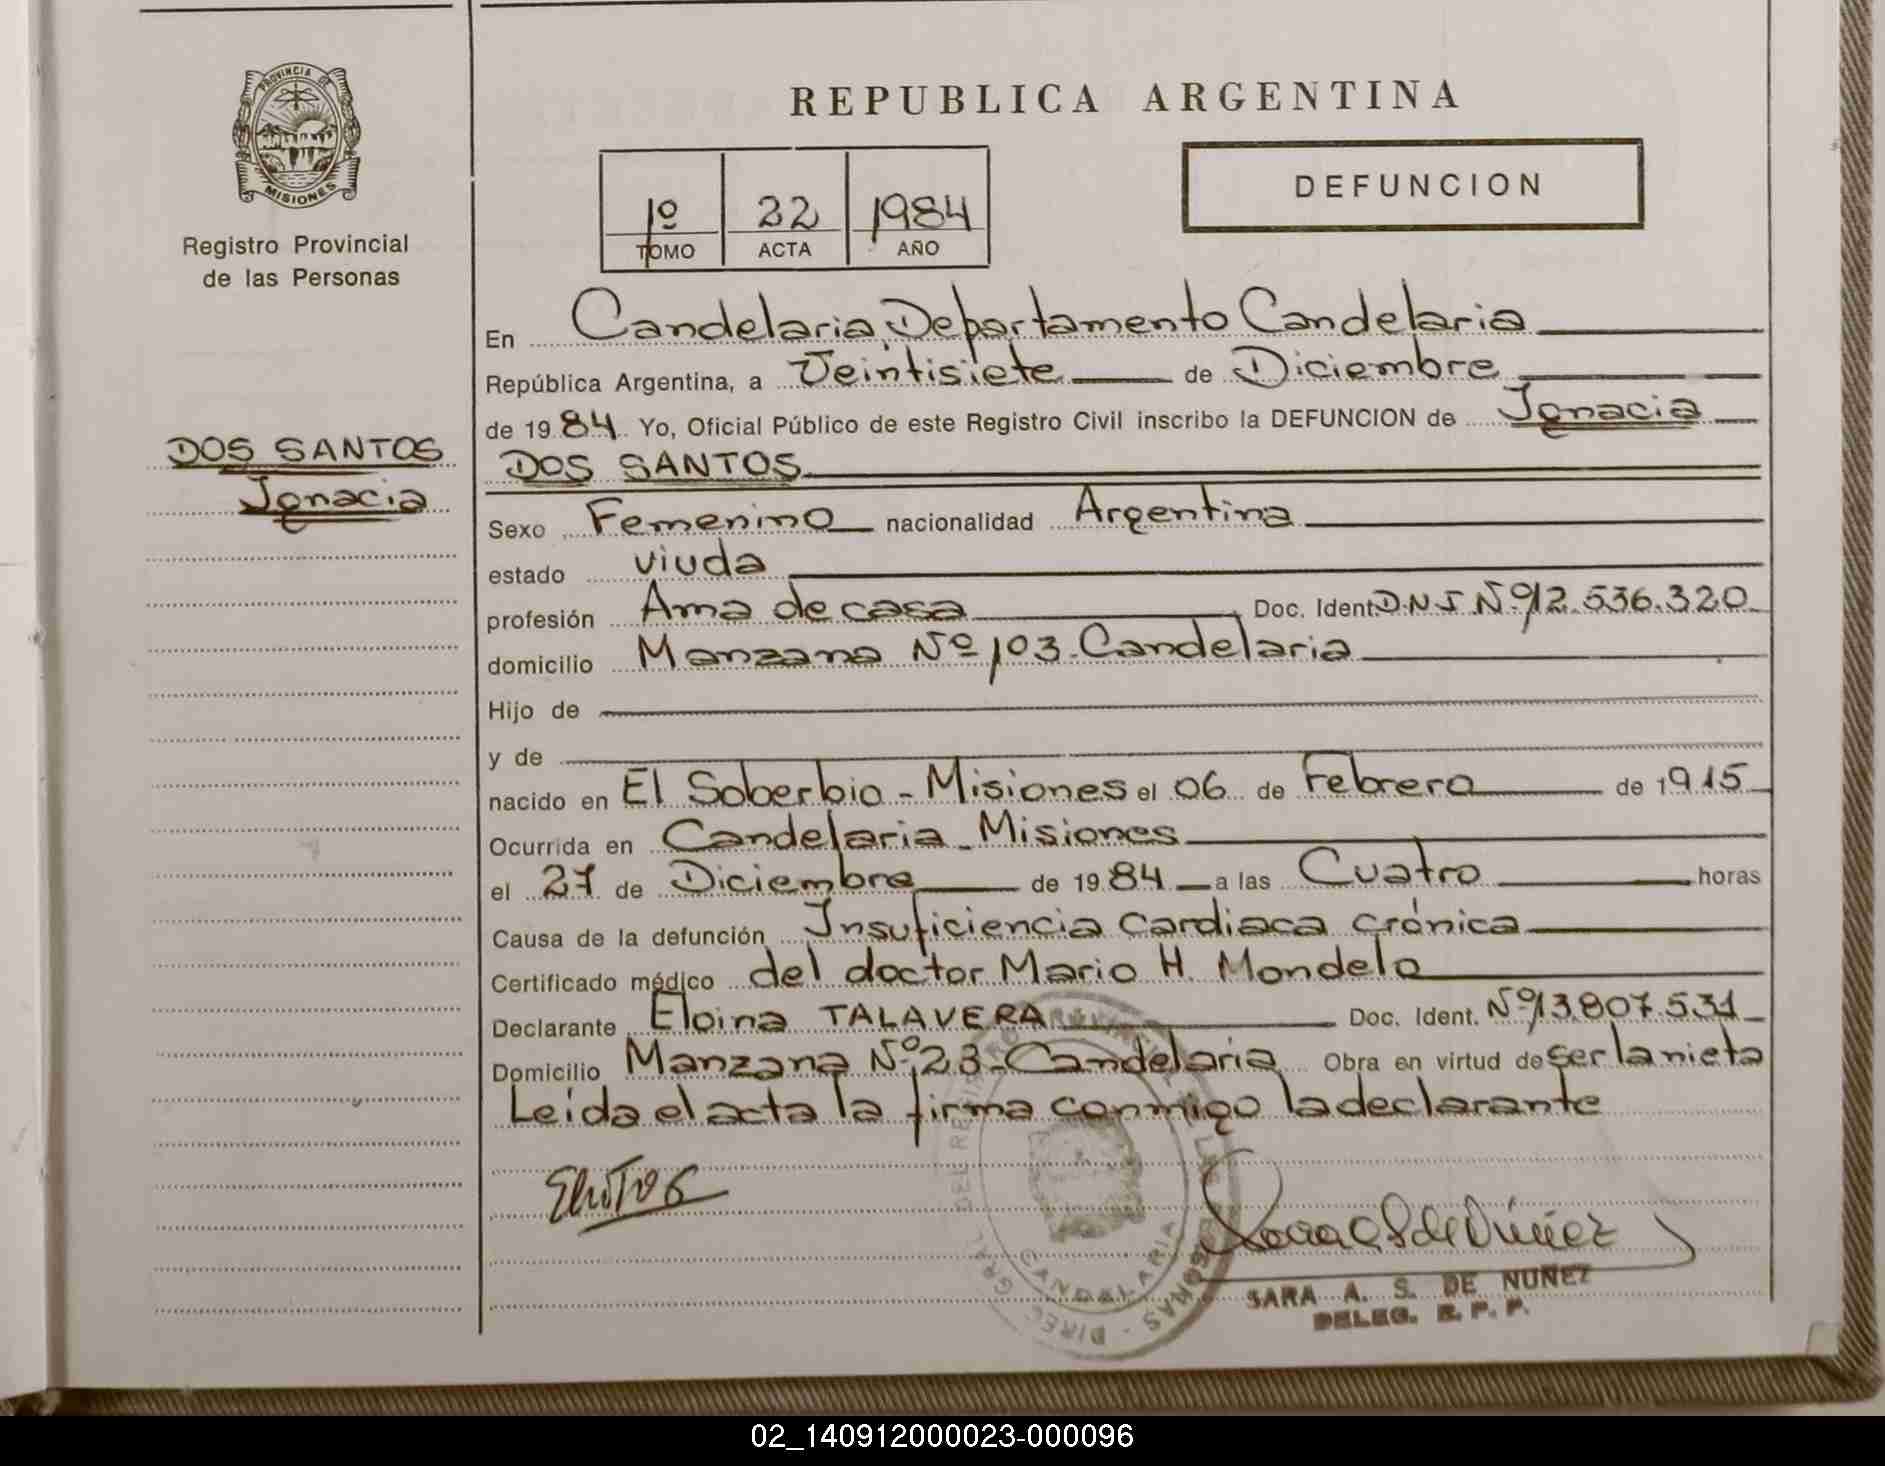 PROVINCIA DE
MISIONES
Registro Provincial
de las Personas
REPUBLICA ARGENTINA
1º 22 1984
TOMO ACTA AÑO
DEFUNCION
En Candelaria, Departamento Candelaria
República Argentina, a Veintisiete de Diciembre
de 1984 Yo, Oficial Público de este Registro Civil inscribo la DEFUNCION de Ignacia
DOS SANTOS
DOS SANTOS
Ignacia
Sexo Femenino nacionalidad Argentina
estado viuda
profesión Ama de casa Doc. Ident. D.N.I Nº 12.536.320
domicilio Manzana Nº 103. Candelaria
Hijo de
y de
nacido en El Soberbio - Misiones el 06 de Febrero de 1915
Ocurrida en Candelaria - Misiones
el 27 de Diciembre de 1984 a las Cuatro horas
Causa de la defunción Insuficiencia Cardiaca crónica
Certificado médico del doctor Mario H. Mondelo
Declarante Eloina TALAVERA Doc. Ident. Nº 13.807.531
Domicilio Manzana Nº 23 - Candelaria Obra en virtud de ser la nieta
Leída el acta la firma conmigo la declarante
DIREC. GRAL. DEL REGISTRO PROVINCIAL DE LAS PERSONAS
CANDELARIA
SARA A. S. DE NUÑEZ
DELEG. R. P. P.
02_140912000023-000096